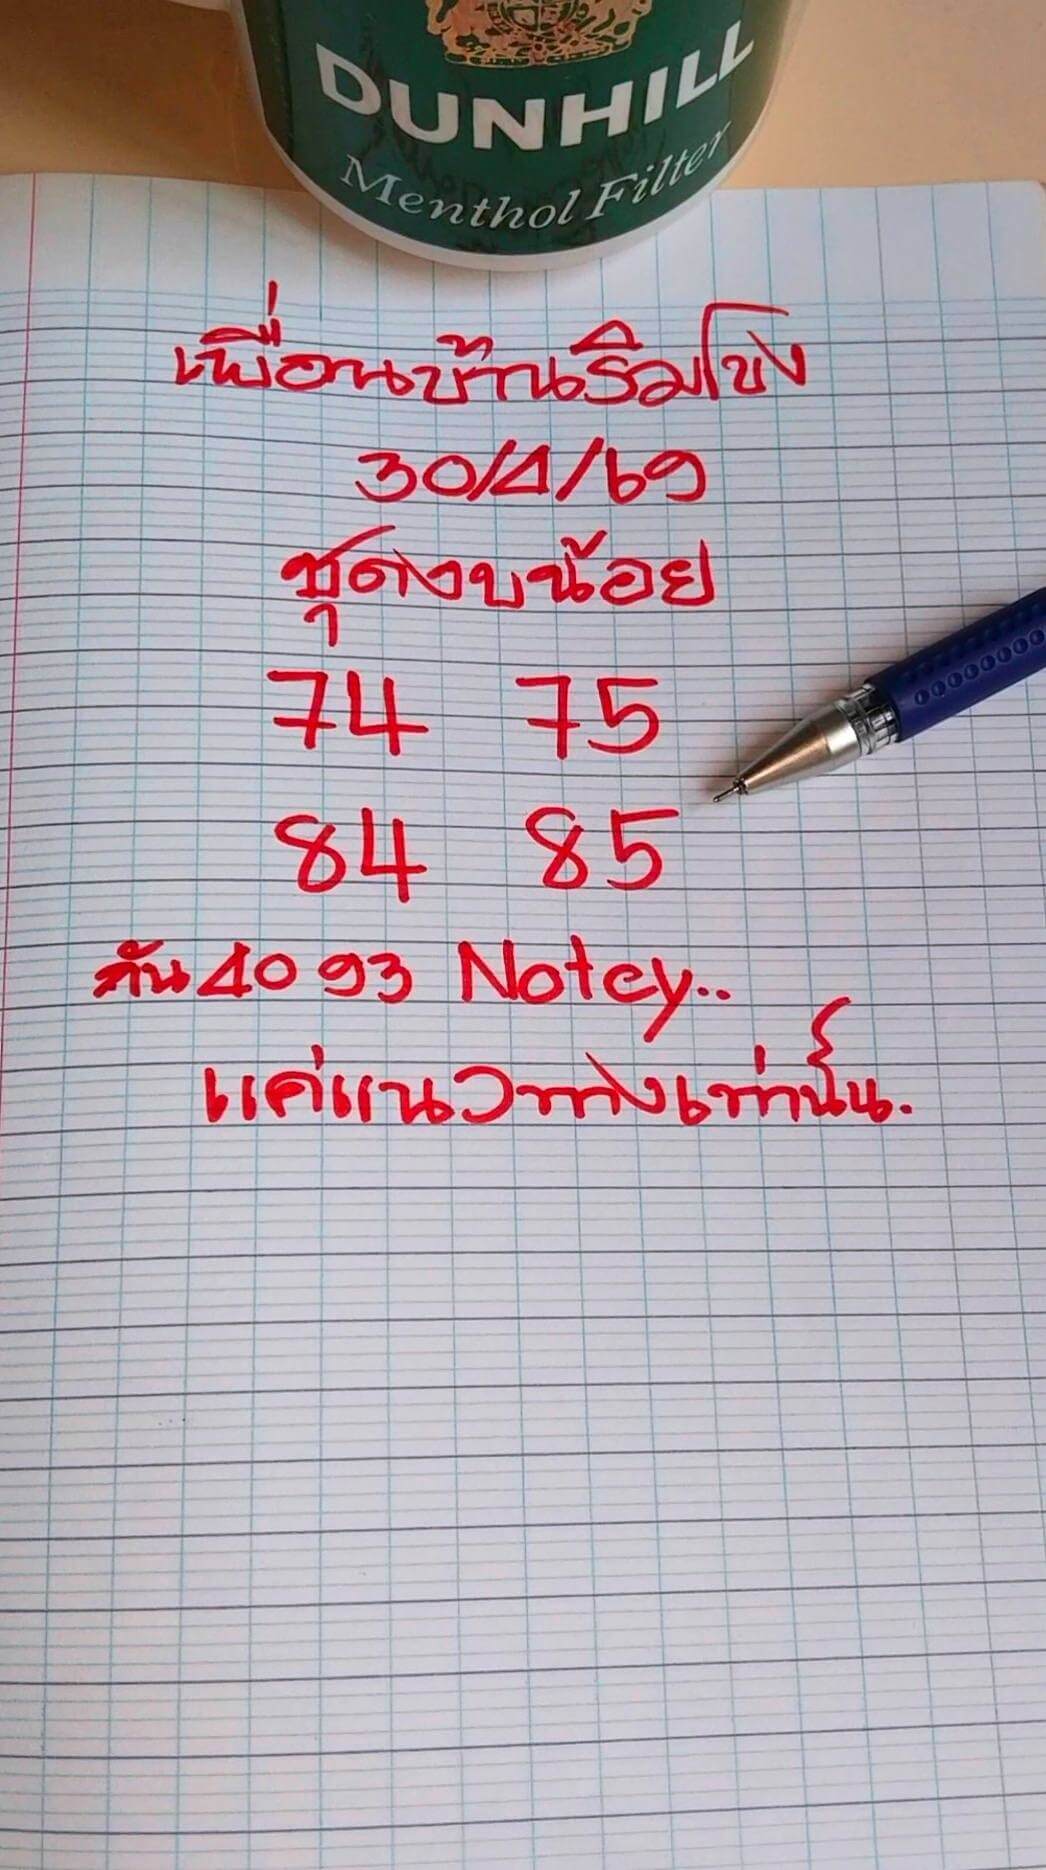 DUNHILL
Menthol Filter
เพื่อนบ้านริมโขง
30/4/69
ชุดงบน้อย
74 75
84 85
กัน 40 93 Notey..
แค่แนวทางเท่านั้น.